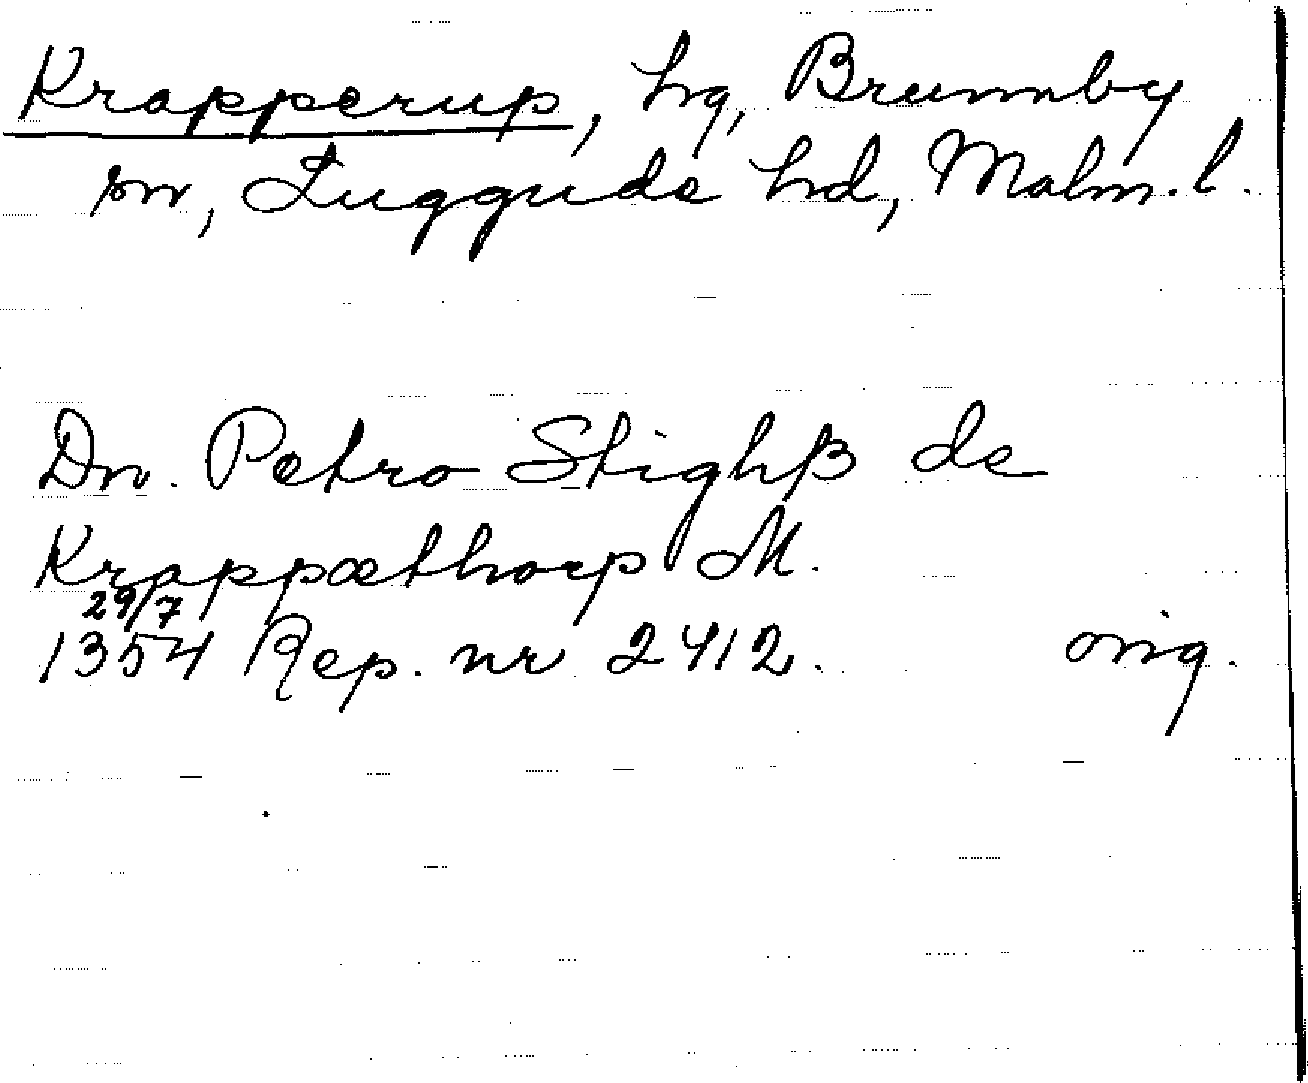 Krapperup, hg, Brunnby
sn, Luggude hd, Malm. l.
Dn. Petro Stighß de
Krappæthorp M.
29/7
1354 Rep. nr 2412. orig.